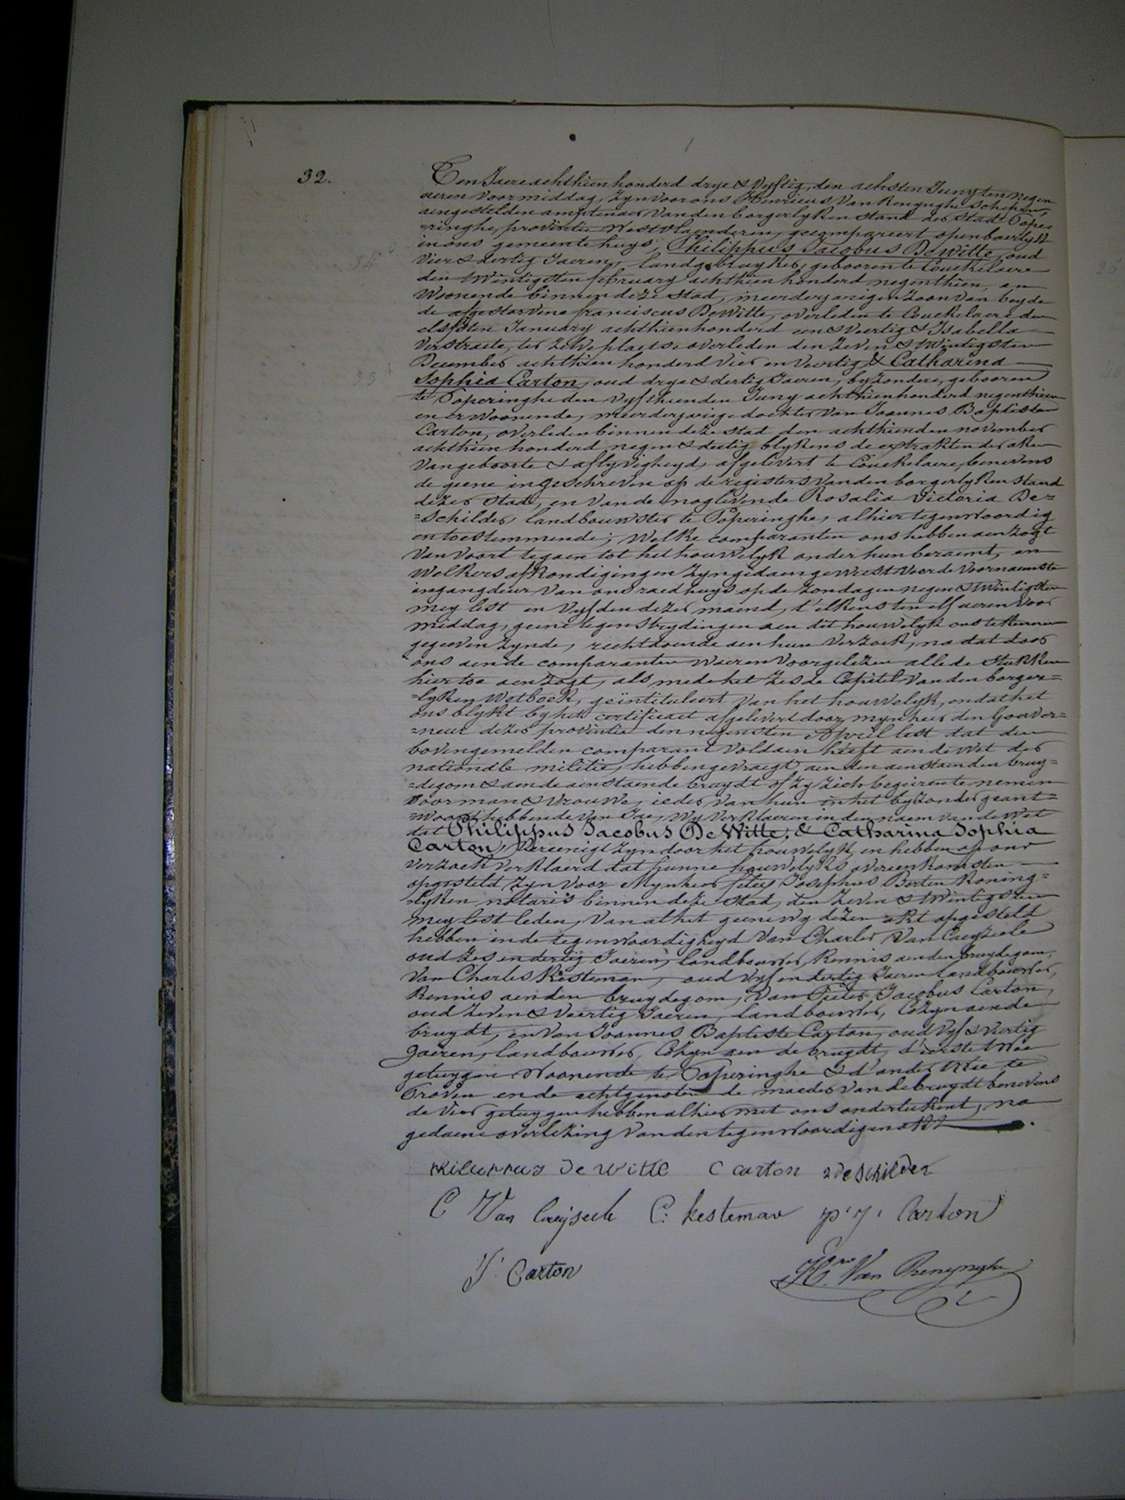 32.
Ten Jaere achthien honderd drye & Vyftig, den achsten Juny ten negen
aeren voormiddag, zyn voor ons Henricus Van Renynghe Schepen,
aengestelden amptenaer van den borgerlyken stand der Stad Pope-
ringhe, provintie Westvlaenderen, gecompareert openboerlyk
in ons gemeente huys, Philippus Jacobus De Witte, oud
Vier & dertig Jaeren, landgebruyker, gebooren te Couckelaere
den twintigsten february achthien honderd negenthien, en
Woonende binnen deze Stad, meerderjarigen Zoon van beyde
de afgestorvene franciscus De Witte, overleden te Couckelaere den
elfsten January achthien honderd een & Veertig & Isabella
Verstraete, ter zelve plaetse overleden den Zeven & twintigsten
December achthien honderd Vier en Veertig & Catharina
Sophia Carton, oud drye & dertig Jaeren, byzondere, gebooren
te Poperinghe den Vyfthienden Juny achthien honderd negenthien
en er Woonende, meerderjarige dochter van Joannes Baptiste
Carton, overleden binnen deze Stad den achthienden november
achthien honderd negen & dertig blykens de extrakten der akten
van geboorte & aflyvigheyd, afgelivert te Couckelaere, benevens
de geene ingeschreven op de registers van den borgerlyken stand
dezer Stad, en van de noglevende Rosalia Victoria De=
=Schilder, landbouwster te Poperinghe, alhier tegenwoordig
en toestemmende; Welke comparanten ons hebben aenzogt
van voort tegaen tot het houwelyk onder hun beraemt, en
Welkers afkondigingen Zyn gedaen geweest voor de voornaemste
ingangdeur van ons raedhuys op de Zondagen negen & twintigsten
mey lest en Vyfden dezer maend, t'elkens ten elf aeren voor
middag, geene tegenstrydingen aen dit houwelyk ons te kennen
gegeven Zynde, rechtdoende aen hun verzoek, na dat door
ons aen de comparanten waeren voorgelezen alle de Stukken
hier toe aenzogt, als mede het Zesde Capitel van den borger=
=lyken Wetboek, geïntituleert van het houwelyk, en dat het
ons blykt by het certificaet afgelivert door mynheer den Gouver=
=neur dezer provintie den negensten April lest dat den
bovengemelden comparant voldaen heeft aen de Wet der
nationale militie, hebben gevraegt aen den aenstaenden bruy=
=degom & aen de aenstaende bruydt of Zy Zich begeiren te nemen
voor man & vrouwe, ieder van hun in het byzonder geant=
woord hebbende van Jae, Wy verklaeren in den naem van de Wet
dat Philippus Jacobus De Witte, & Catharina Sophia
Carton, Vereenigt Zyn door het houwelyk en hebben op ons
verzoek verklaerd dat hunne houwelyks overeenkomsten
opgesteld Zyn voor Mynheer Peter Josephus Berten Koning=
=lyken notaris binnen deze Stad, den Zeven & twintigsten
mey lest leden, Van al het geene wy dezen akt opgesteld
hebben in de tegenwoordigheyd van Charles Van Caeyseele
oud Zes en dertig Jaeren, landbouwer, Kennis aen den bruydegom,
van Charles Kesteman, oud Vyf en dertig Jaeren landbouwer,
Kennis aen den bruydegom, van Pieter Jacobus Carton,
oud Zeven & Veertig Jaeren, landbouwer, Cozyn aen de
bruydt, en van Joannes Baptiste Carton, oud Vyf & Veertig
Jaeren, landbouwer, Cozyn aen de bruydt, d'eerste twee
getuygen Woonende te Poperinghe & d'ander twee te
Proven en de echtgenoten de moeder van de bruydt benevens
de vier getuygen hebben alhier met ons onderteekent, na
gedaene overlezing van den tegenwoordigen akt
De Witte C Carton R De Schilder
C Van Caeyseele C: Kesteman p: J: Carton
J: Carton Hri Van Renynghe